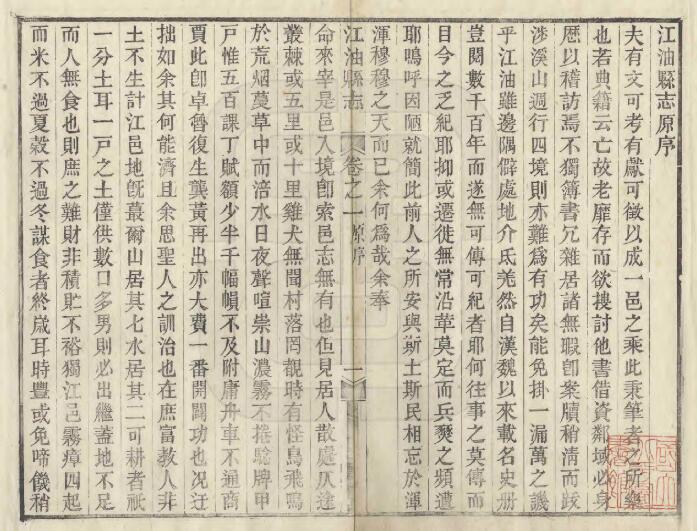 江油縣志原序
夫有文可考有獻可徵以成一邑之乘此秉筆者之所樂
也若典籍云亡故老靡存而欲摟討他書借資鄰域必身
歴以稽訪焉不獨簿書冗雜居諸無暇卽案牘稍淸而跋
渉溪山週行四境則亦難爲有功矣能免掛一漏萬之譏
乎江油雖邊隅僻處地介氐羌然自漢魏以來載名史册
豈閱數千百年而遂無可傳可紀者耶何往事之莫傳而
目今之乏紀耶抑或遷徙無常沿革莫定而兵燹之頻遭
耶嗚呼因陋就簡此前人之所安與斯土斯民相忘於渾
渾穆穆之天而已余何爲哉余奉
江油縣志
卷之一原序
一
命來宰是邑入境卽索邑志無有也但見居人散處仄逵
叢棘或五里或十里雞犬無聞村落罔覩時有怪鳥飛鳴
於荒烟蔓草中而涪水日夜聲喧崇山濃霧不捲騐牌甲
戸惟五百課丁賦額少半千幅幀不及附庸舟車不通商
賈此卽卓魯復生龔黃再出亦大費一番開闢功也况迂
拙如余其何能濟且余思聖人之訓治也在庶富教人非
土不生計江邑地旣蕞爾山居其七水居其二可耕者祇
一分土耳一戸之土僅供數口多男則必出繼蓋地不足
而人無食也則庶之難財非積貯不裕獨江邑霧瘴四起
而米不過夏穀不過冬謀食者終歲耳時豐或免啼饑稍